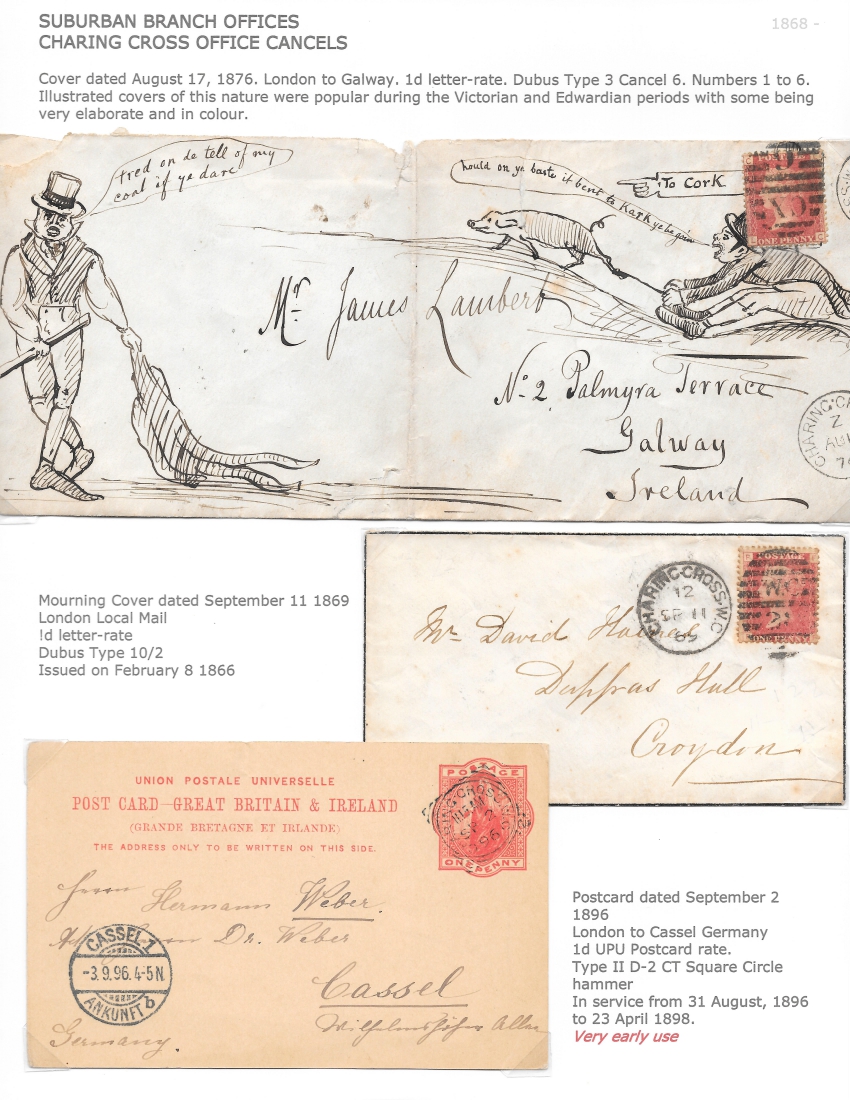 SUBURBAN BRANCH OFFICES
1868 -
CHARING CROSS OFFICE CANCELS
Cover dated August 17, 1876. London to Galway. 1d letter-rate. Dubus Type 3 Cancel 6. Numbers 1 to 6.
Illustrated covers of this nature were popular during the Victorian and Edwardian periods with some being
very elaborate and in colour.
tred on de tell of my
coat if ye dare
hould on ye baste it bent to Kark ye begorra
To Cork
ONE PENNY
Mr James Lambert
No. 2 Palmyra Terrace
Galway
Ireland
CHARING·CR
Z
AU
7
Mourning Cover dated September 11 1869
London Local Mail
!d letter-rate
Dubus Type 10/2
Issued on February 8 1866
CHARING-CROSS-W.C
12
SP 11
69
POSTAGE
WC
2
Mr David
Hall
Croydon
UNION POSTALE UNIVERSELLE
POST CARD—GREAT BRITAIN & IRELAND
(GRANDE BRETAGNE ET IRLANDE)
THE ADDRESS ONLY TO BE WRITTEN ON THIS SIDE.
POSTAGE
RING-CROSS
SP 2
96
ONE PENNY
Herrn Hermann Weber
Dr. Weber
Cassel
Wilhelmshöher Allee
Germany.
CASSEL·1
-3.9.96.4-5N
ANKUNFT
Postcard dated September 2
1896
London to Cassel Germany
1d UPU Postcard rate.
Type II D-2 CT Square Circle
hammer
In service from 31 August, 1896
to 23 April 1898.
Very early use